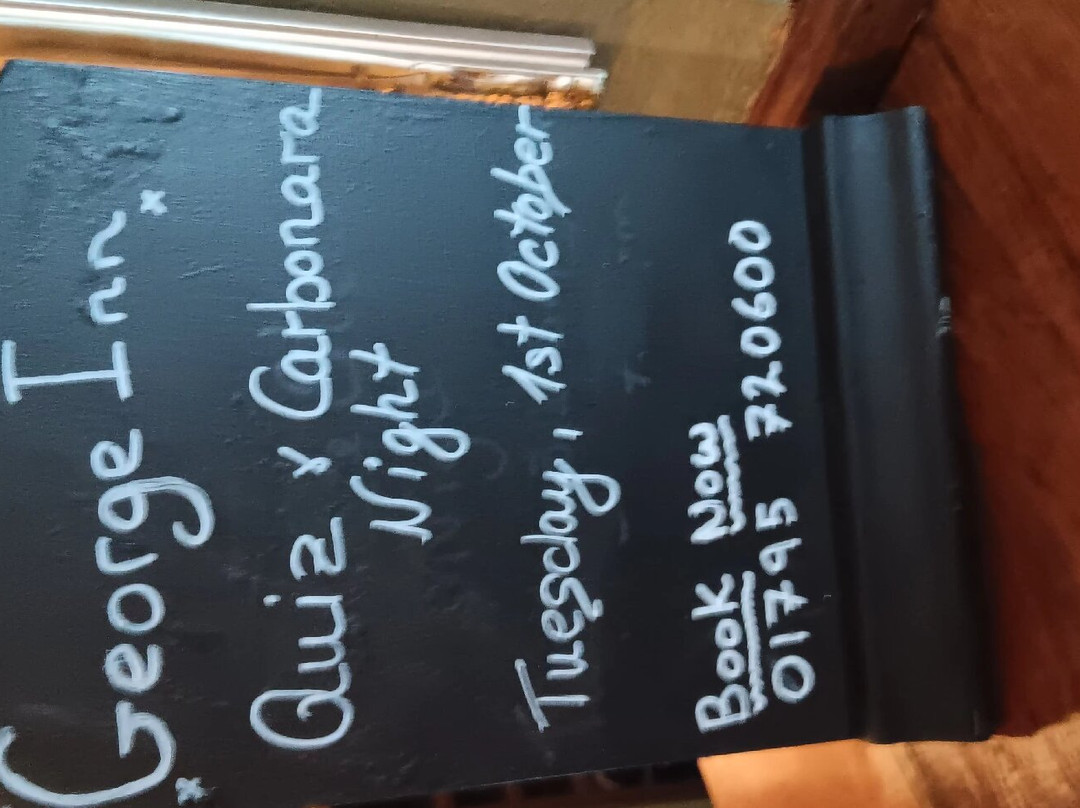 George Inn
Quiz & Carbonara
Night
Tuesday, 1st October
Book Now
01795 720600